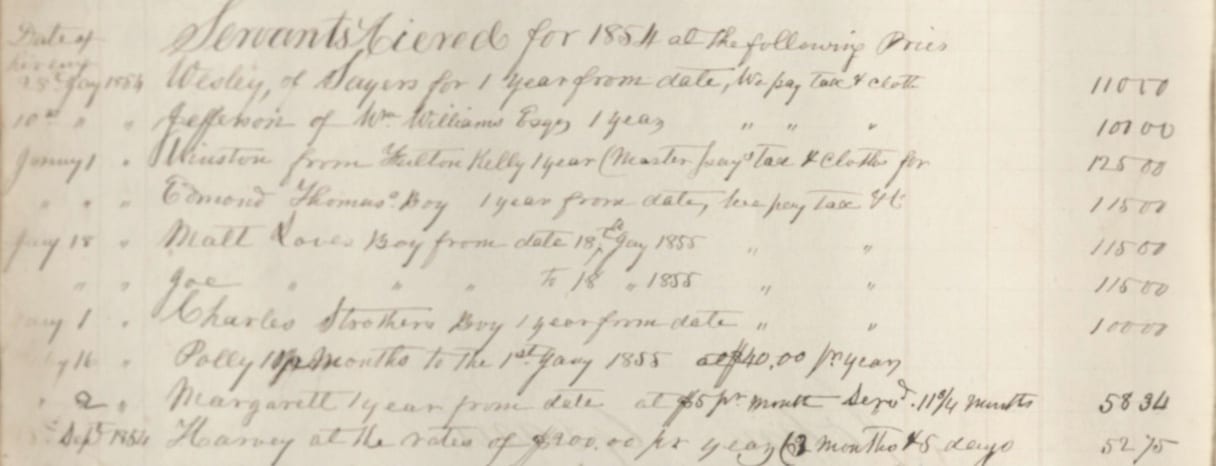 Date of Servants hiered for 1854 at the following Pries
hireing
28th Jany 1854 Wesley, of Sayers for 1 year from date, We pay tax & cloth 110 00
10th " " Jefferson of Wm Williams Esqr 1 year " " " 100 00
Janury 1 " Winston from Fulton Kelly 1 year (Master pays tax & cloths for 125 00
" " " Edmond Thomas' Boy 1 year from date, we pay tax &c 115 00
Jany 18 " Matt Loves Boy from date 18th Jany 1855 " " 115 00
" " Joe " " " to 18 " 1855 " " 115 00
Jany 1 " Charles Strothers Boy 1 year from date " " 100 00
16 " Polly months to the 1st Jany 1855 at $40.00 pr year
" 2 " Margarett 1 year from date at $5 pr month Servd. 11 3/4 months 58 34
Sept 1854 Harvey at the rates of $200.00 pr year (3 months & 5 days 52 75